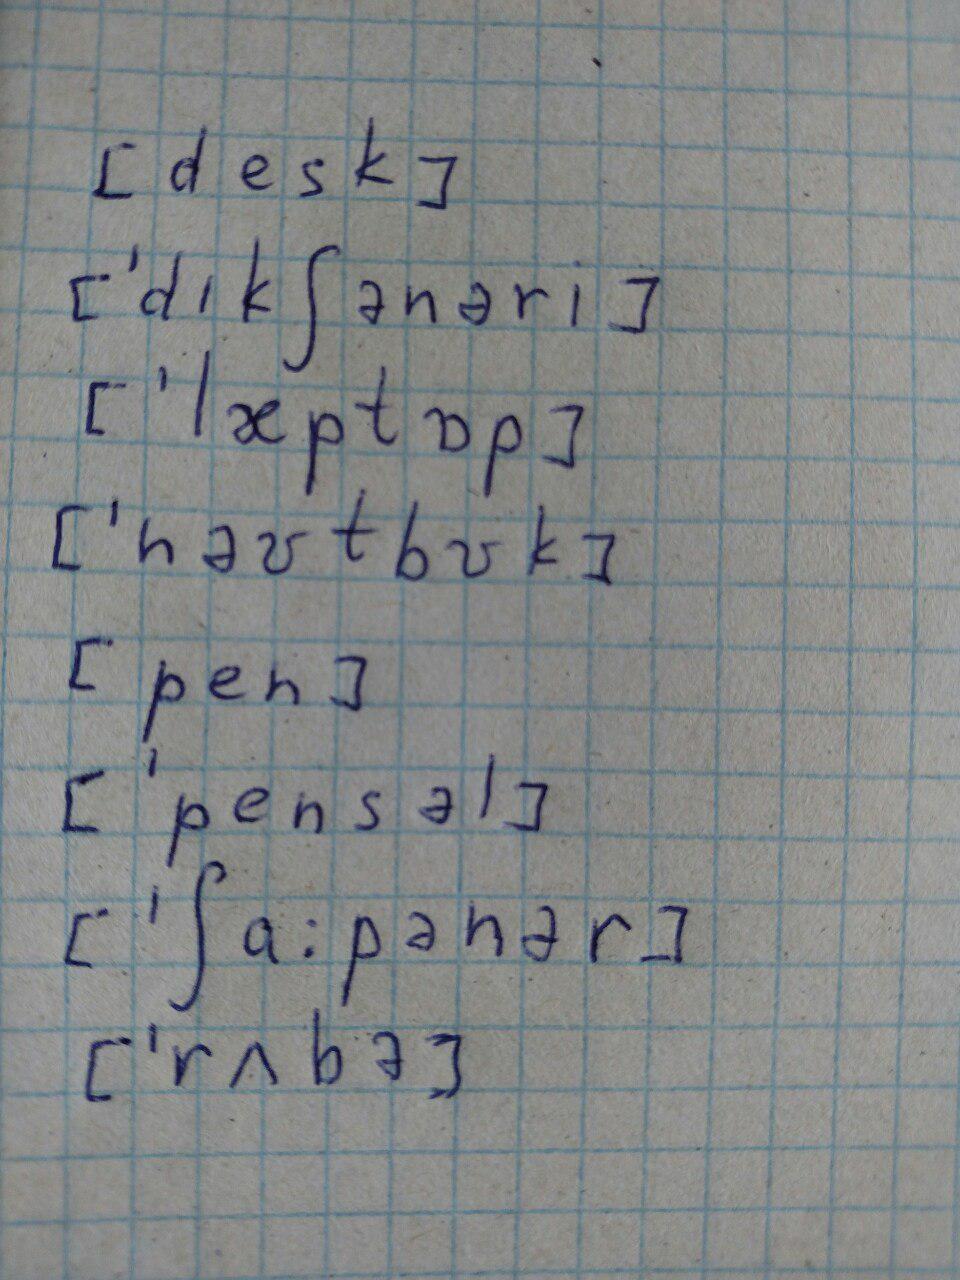 [desk]
['dıkʃənəri]
['læptɒp]
['nəʊtbʊk]
[pen]
['pensəl]
['ʃa:pənər]
['rʌbə]